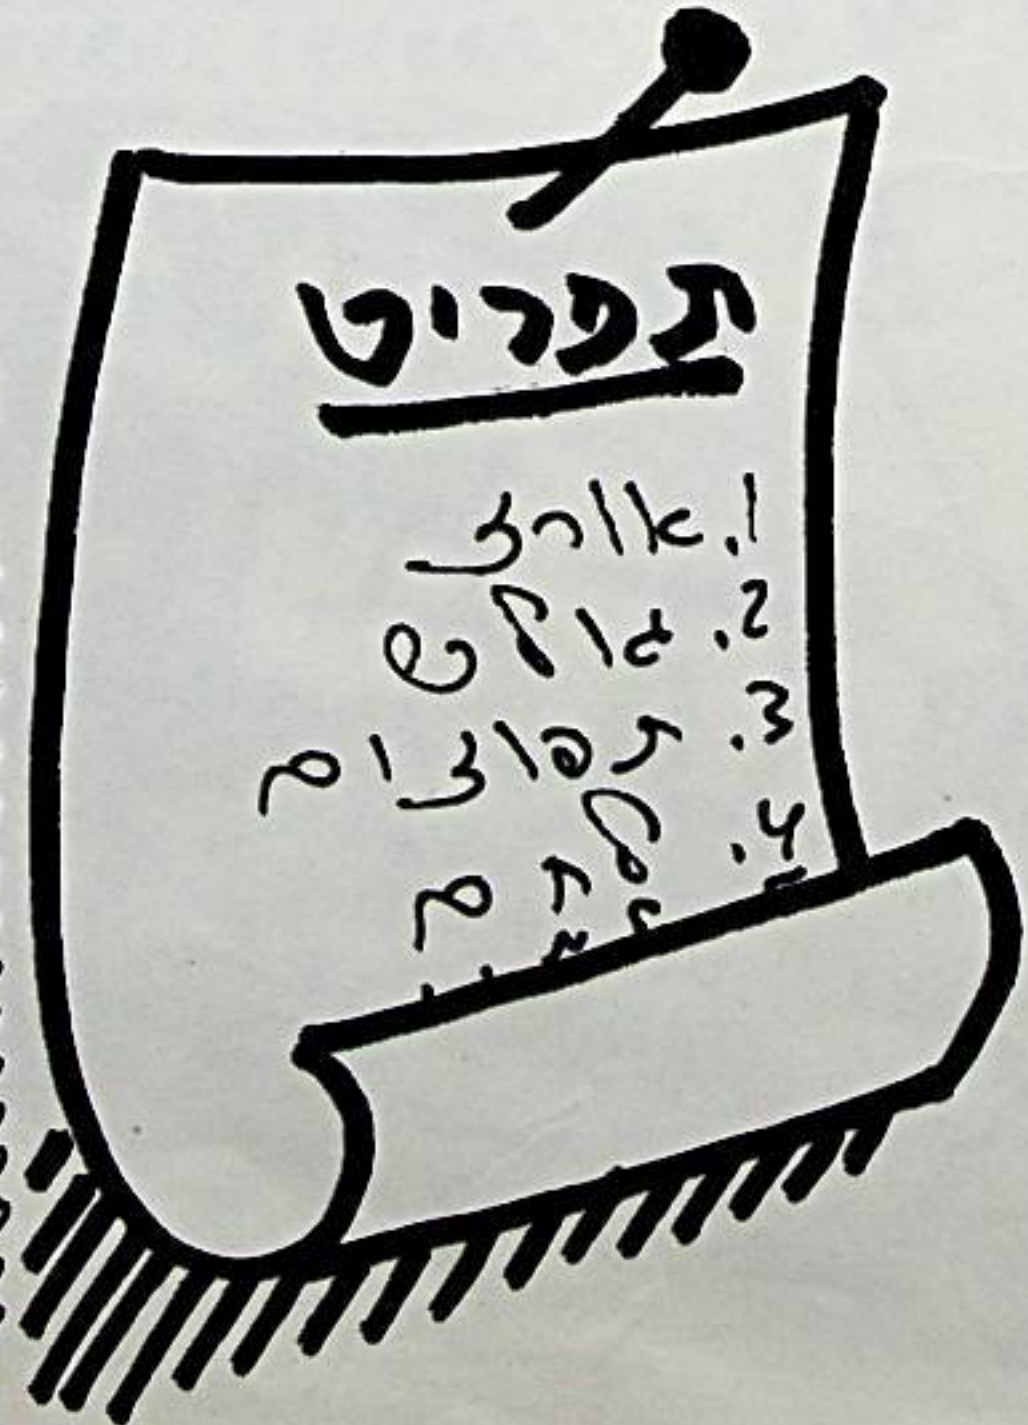 תפריט
1. אורז
2. גולש
3. תפוזים
4. לתם